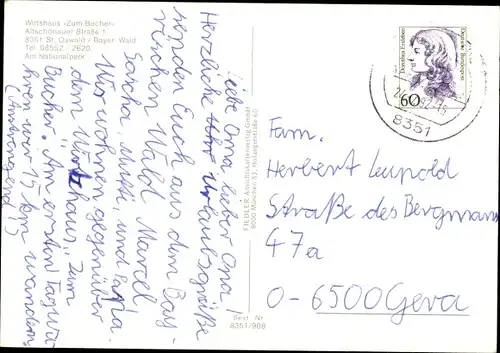 Wirtshaus »Zum Bucher«
Altschönauer Straße 1
8351 St. Oswald / Bayer. Wald
Tel. 08552 - 2620
Am Nationalpark
Liebe Oma lieber Opa,
Herzliche Urlaubsgrüße
senden Euch aus dem Bay-
rischen Wald Marcel
Sascha, Mutti, und Papa.
Wir wohnen gegenüber
dem Wirtshaus "Zum
Bucher". Am ersten Tag wa-
hren wir 15 km wandern.
(Anstrengend!)
FIEDLER Ansichtskartenverlag GmbH
8000 München 83, Hofangerstraße 60
Best. Nr.
8351/908
Dorothea Erxleben
Deutsche Bundespost
60
8351
Fam.
Herbert Leupold
Straße des Bergmann
47a
O-6500 Gera